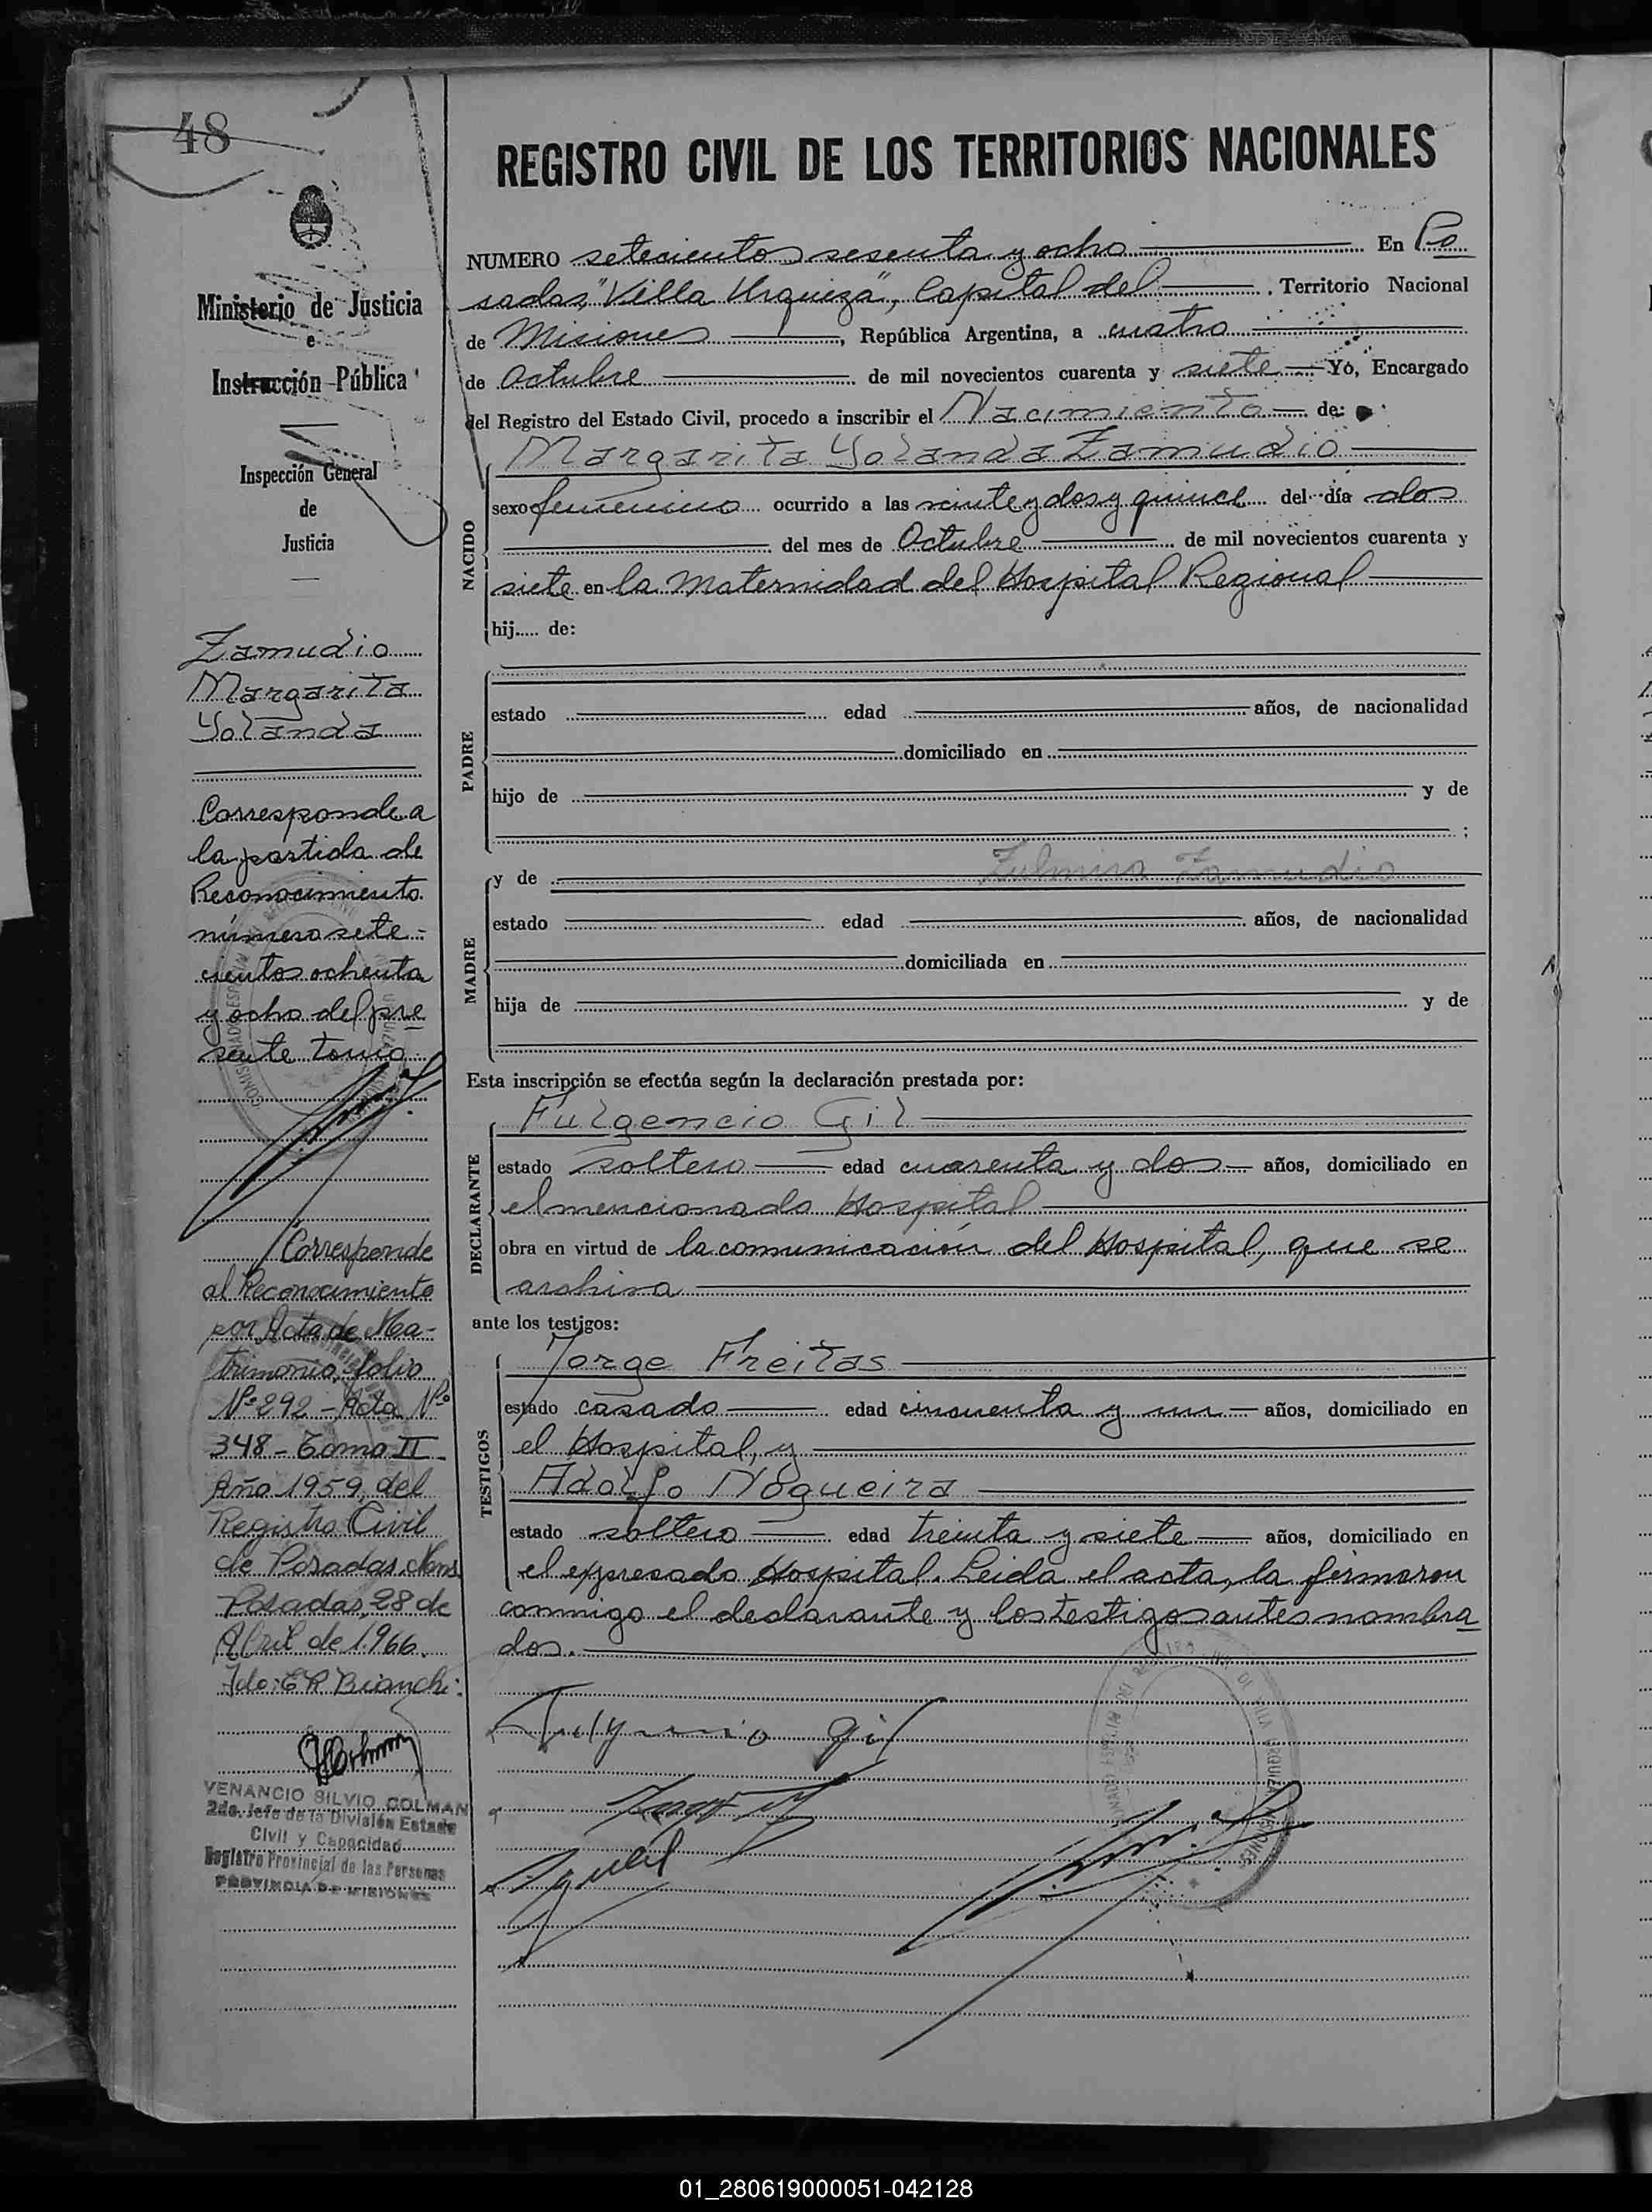 48
REGISTRO CIVIL DE LOS TERRITORIOS NACIONALES
Ministerio de Justicia
e
Instrucción Pública
Inspección General
de
Justicia
Zamudio
Margarita
Yolanda
Corresponde a
la partida de
Reconocimiento
número sete-
cientos ochenta
y ocho del pre
sente tomo
Corresponde
al Reconocimiento
por Acta de Ma-
trimonio, folio
Nº 292 - Acta Nº
348 - Tomo II
Año 1959, del
Registro Civil
de Posadas. Mnes
Posadas, 28 de
Abril de 1966.
Fdo: E R Bianchi
VENANCIO SILVIO COLMAN
2do. Jefe de la División Estado
Civil y Capacidad
Registro Provincial de las Personas
PROVINCIA DE MISIONES
NUMERO setecientos sesenta y ocho En Po
sadas, "Villa Urquiza", Capital del Territorio Nacional
de Misiones, República Argentina, a cuatro
de Octubre de mil novecientos cuarenta y siete Yo, Encargado
del Registro del Estado Civil, procedo a inscribir el Nacimiento de:
Margarita Yolanda Zamudio
NACIDO
sexo femenino ocurrido a las veinte y dos y quince del día dos
del mes de Octubre de mil novecientos cuarenta y
siete en la Maternidad del Hospital Regional
hij..... de:
PADRE
estado edad años, de nacionalidad
domiciliado en
hijo de y de
;
MADRE
y de Zulmira Zamudio
estado edad años, de nacionalidad
domiciliada en
hija de y de
Esta inscripción se efectúa según la declaración prestada por:
DECLARANTE
Fulgencio Gil
estado soltero edad cuarenta y dos años, domiciliado en
el mencionado Hospital
obra en virtud de la comunicación del Hospital, que se
archiva
ante los testigos:
TESTIGOS
Jorge Freitas
estado casado edad cincuenta y un años, domiciliado en
el Hospital, y
Adolfo Nogueira
estado soltero edad treinta y siete años, domiciliado en
el expresado Hospital. Leida el acta, la firmaron
conmigo el declarante y los testigos antes nombra
dos.
Fulgencio Gil
01_280619000051-042128